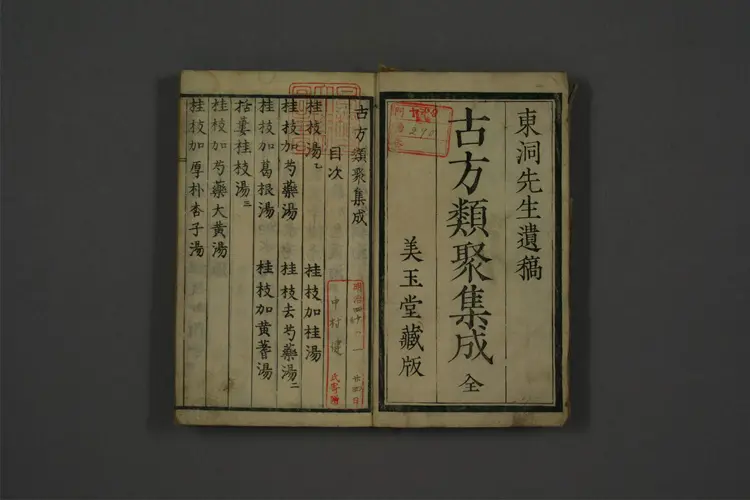 東洞先生遺稿
古方類聚集成 全
美玉堂藏版
古方類聚集成
目次
桂枝湯乙 桂枝加桂湯
桂枝加芍藥湯 桂枝去芍藥湯二
桂枝加葛根湯 桂枝加黃蓍湯
栝蔞桂枝湯三
桂枝加芍藥大黃湯
桂枝加厚朴杏子湯
明治四十
中村
氏寄贈